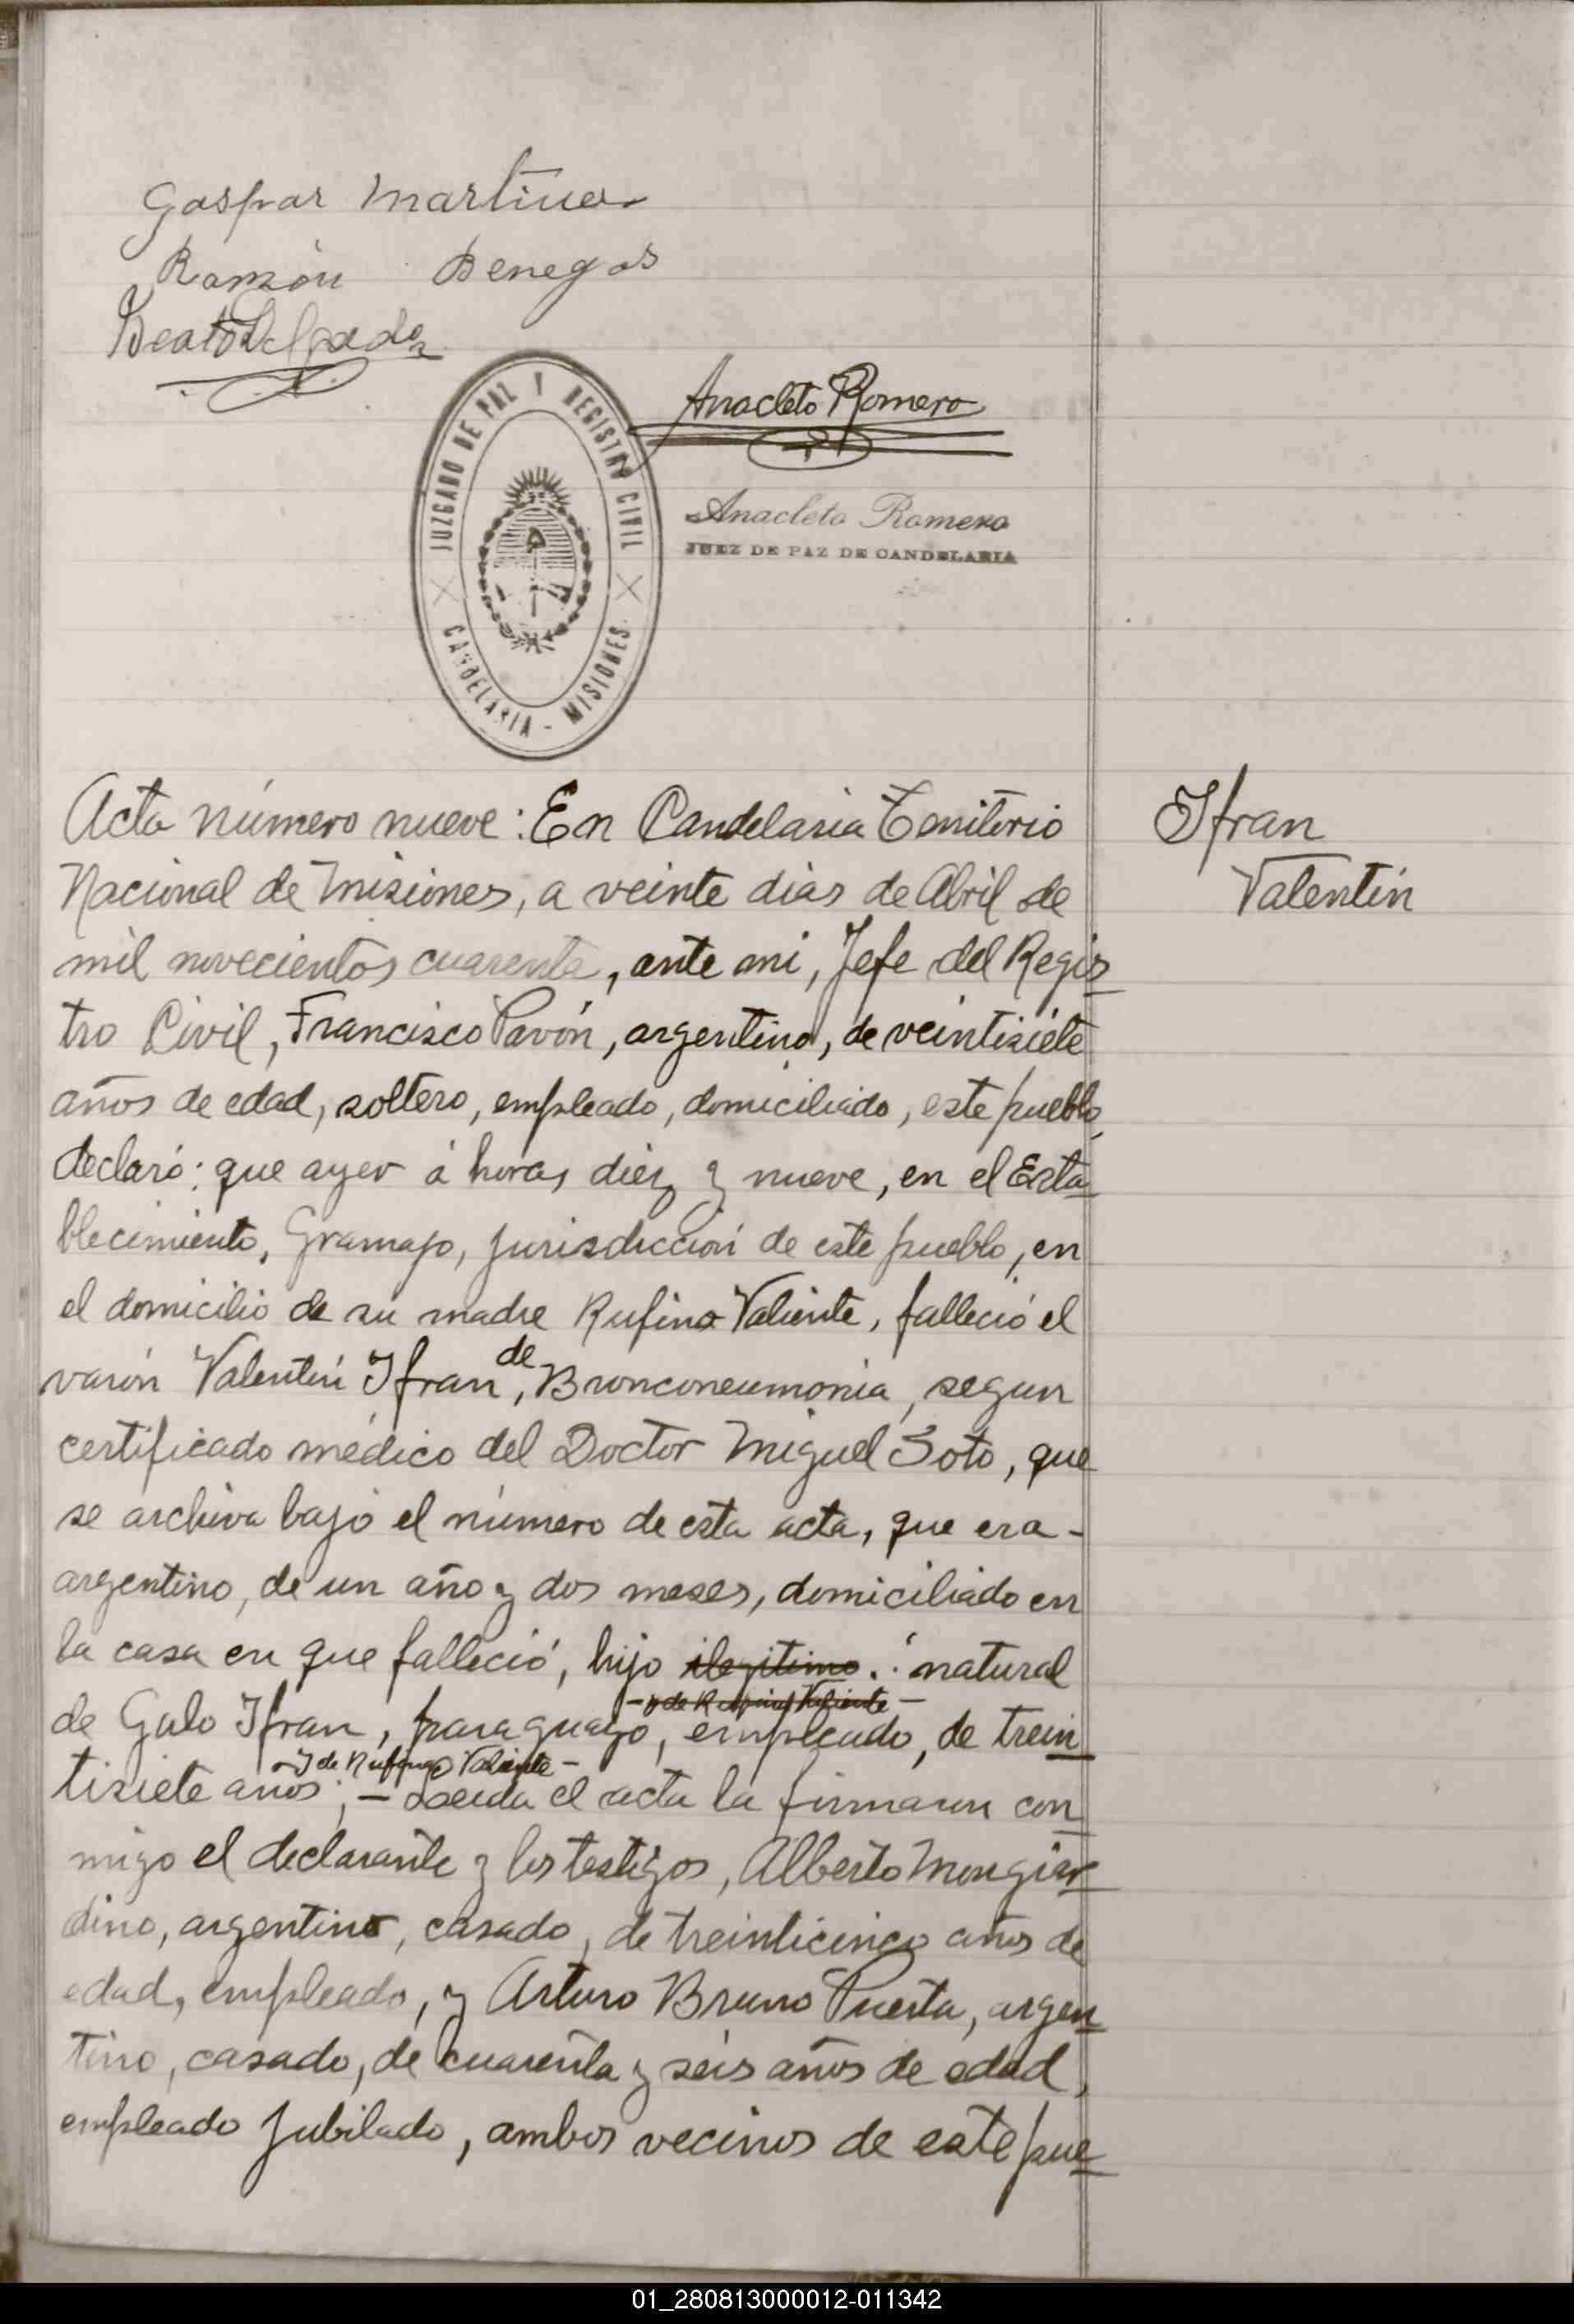 Gaspar Martinez
Ramón Benegas
Beato Delgado
Anacleto Romero
JUZGADO DE PAZ Y REGISTRO CIVIL
CANDELARIA - MISIONES
Anacleto Romero
JUEZ DE PAZ DE CANDELARIA
Ifran
Valentín
Acta número nueve: En Candelaria Territorio
Nacional de Misiones, a veinte dias de Abril de
mil novecientos cuarenta, ante mi, Jefe del Regis
tro Civil, Francisco Pavón, argentino, de veintisiete
años de edad, soltero, empleado, domiciliado, este pueblo,
declaró: que ayer á horas diez y nueve, en el Esta
blecimiento, Gramajo, jurisdicción de este pueblo, en
el domicilio de su madre Rufina Valiente, falleció el
varón Valentín Ifran, de Bronconeumonia, segun
certificado médico del Doctor Miguel Soto, que
se archiva bajo el número de esta acta, que era -
argentino, de un año y dos meses, domiciliado en
la casa en que falleció, hijo ilegitimo. natural
- y de Rufina Valiente -
de Galo Ifran, paraguayo, empleado, de trein
- Y de Rufina Valiente -
tisiete años; - Leida el acta la firmaron con
migo el declarante y los testigos, Alberto Mongiar
dino, argentino, casado, de treinticinco años de
edad, empleado, y Arturo Bruno Puerta, argen
tino, casado, de cuarenta y seis años de edad,
empleado jubilado, ambos vecinos de este pue
01_280813000012-011342